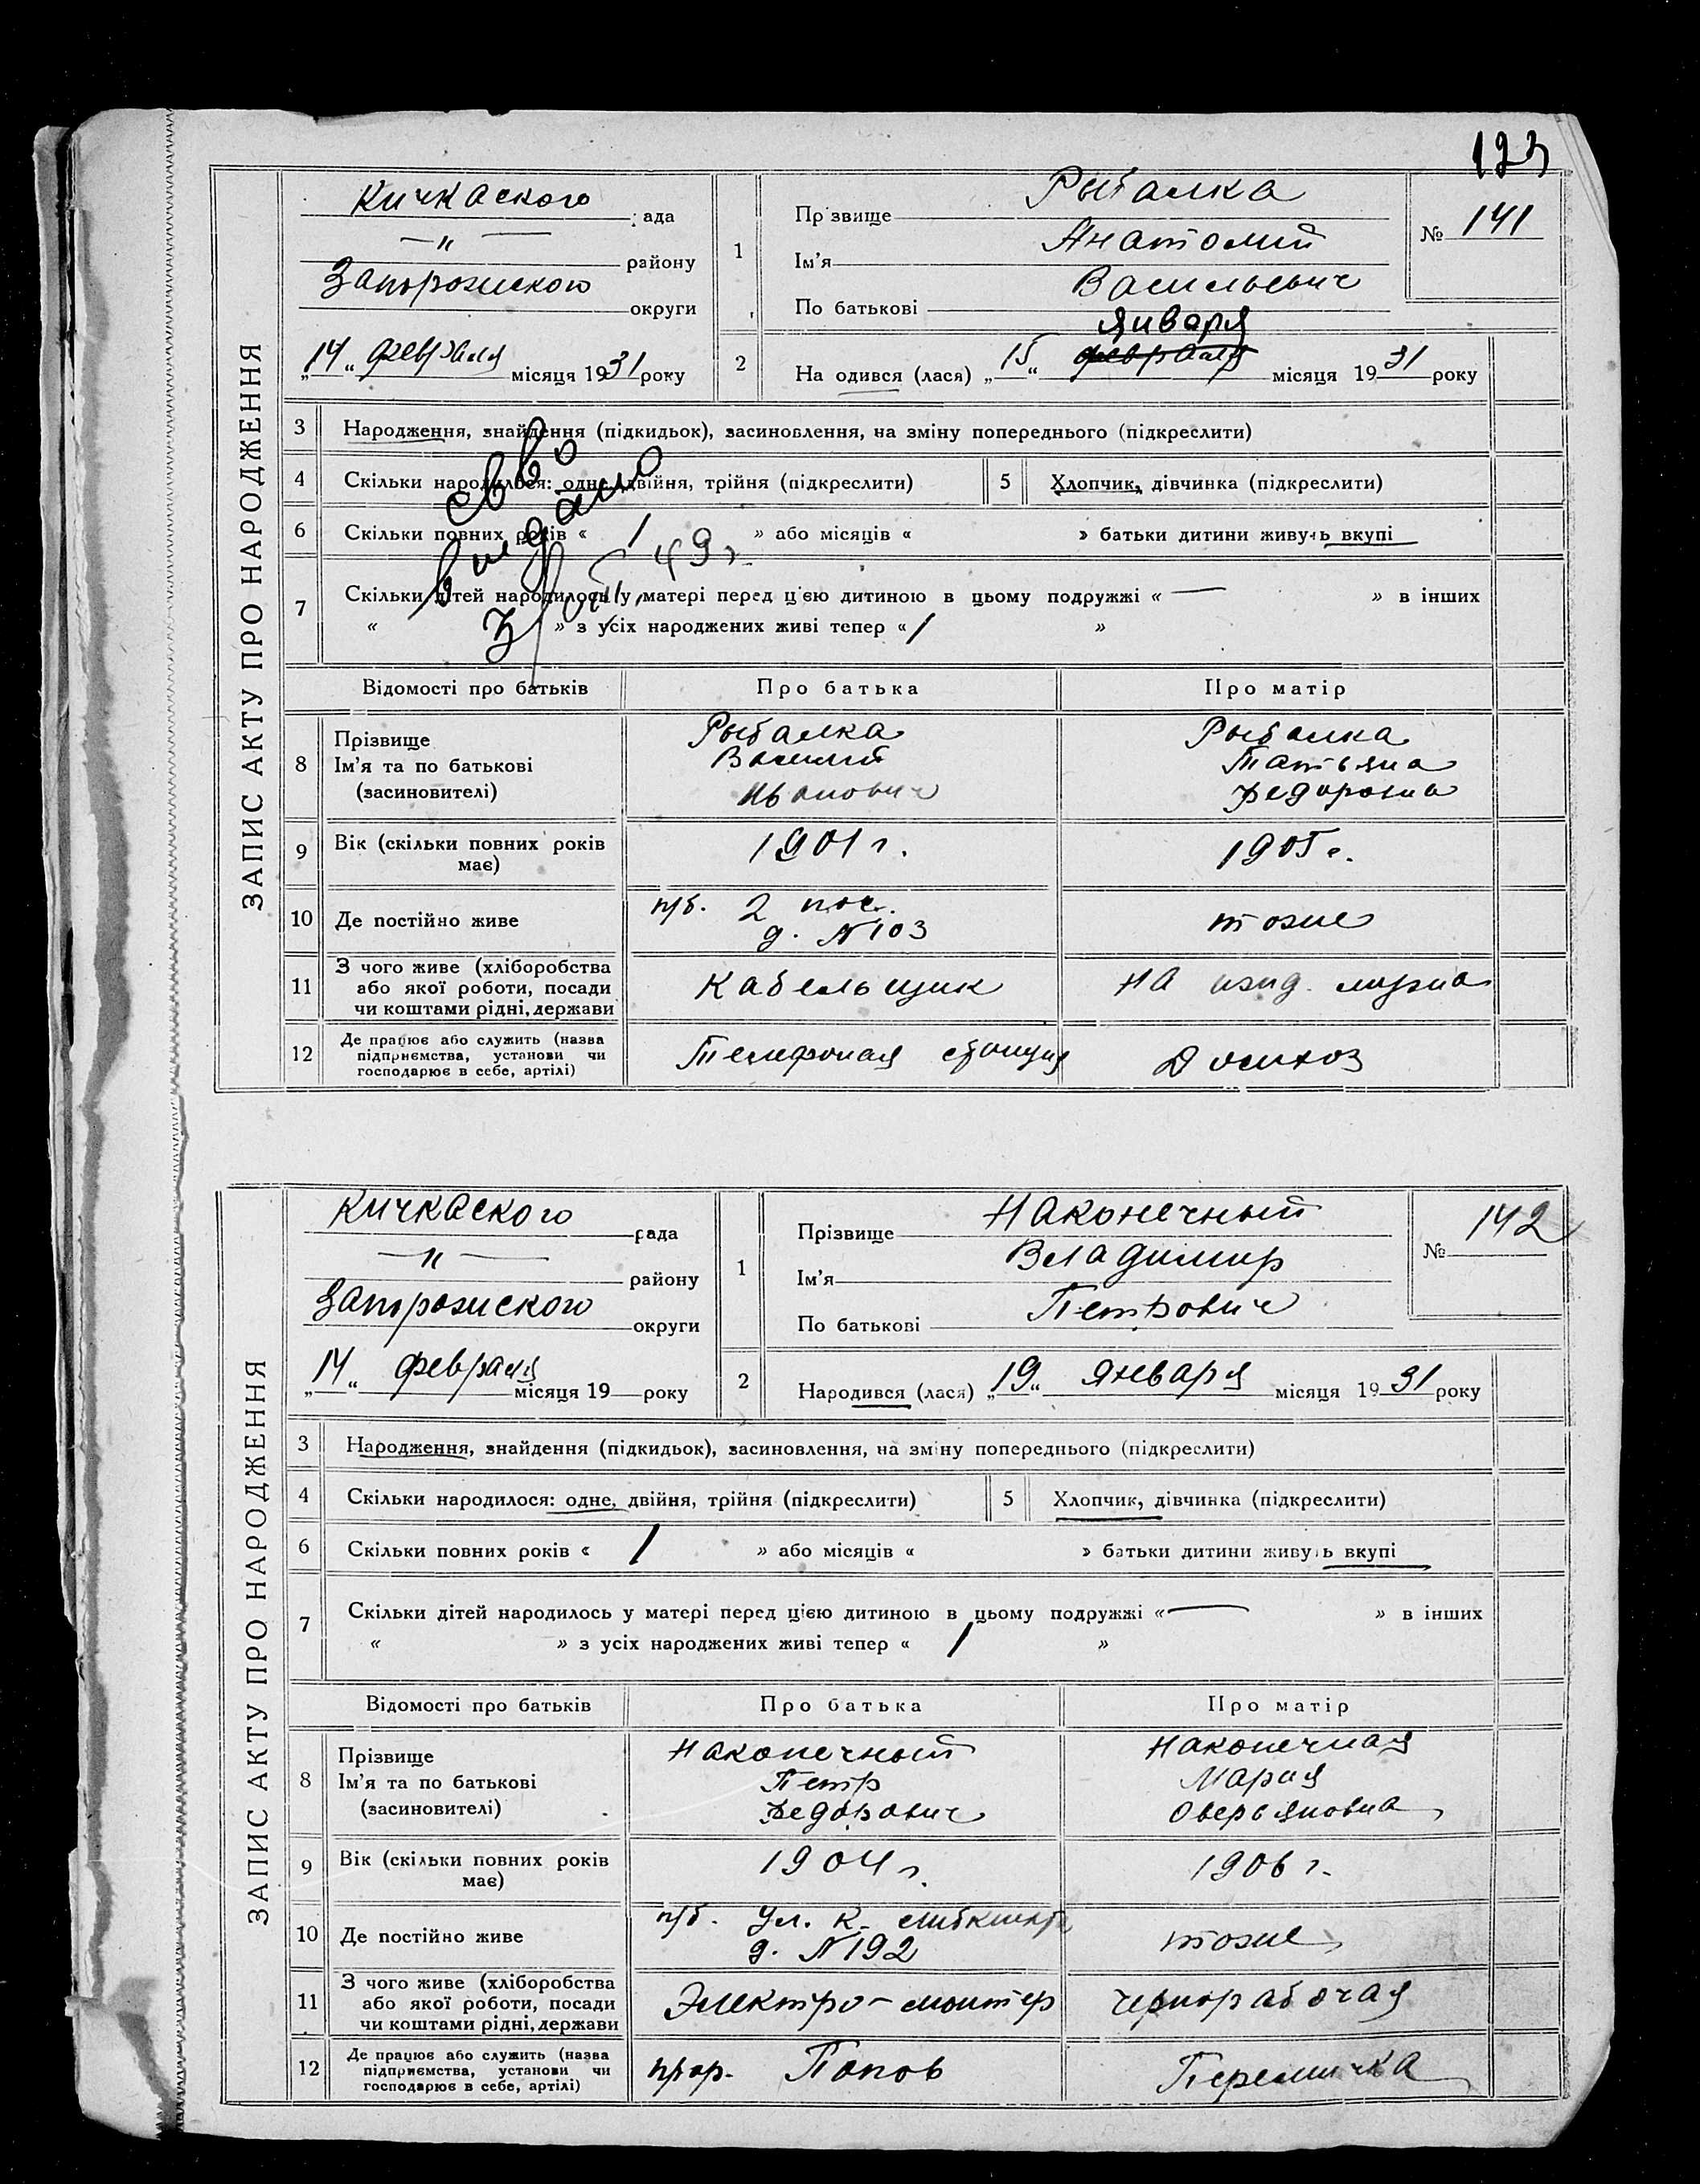 123
ЗАПИС АКТУ ПРО НАРОДЖЕННЯ
Кичкаского рада
—"— району
Запорожского округи
„14“ февраля місяця 1931 року
1
Прізвище Рыбалка
Ім'я Анатолий
По батькові Васильевич
№ 141
января
2 На одився (лася) „15“ февраля місяця 1931 року
3 Народження, знайдення (підкидьок), засиновлення, на зміну попереднього (підкреслити)
4 Скільки народилося: одне, двійня, трійня (підкреслити) 5 Хлопчик, дівчинка (підкреслити)
6 Скільки повних років « 1 » або місяців « » батьки дитини живуть вкупі
7 Скільки дітей народилось у матері перед цією дитиною в цьому подружжі « — » в інших
« » з усіх народжених живі тепер « 1 »
св во
выдано
49 г.
Відомості про батьків Про батька Про матір
8 Прізвище Рыбалка Рыбалка
Ім'я та по батькові Василий Татьяна
(засиновителі) Иванович Федоровна
9 Вік (скільки повних років має) 1901 г. 1905 г.
10 Де постійно живе п/б. 2 пос. тоже
д. №103
11 З чого живе (хліборобства Кабельщик На ижд. мужа
або якої роботи, посади
чи коштами рідні, держави
12 Де працює або служить (назва Телефоная станция Домхоз
підприємства, установи чи
господарює в себе, артілі)
ЗАПИС АКТУ ПРО НАРОДЖЕННЯ
Кичкаского рада
—"— району
Запорожского округи
„14“ февраля місяця 19 року
1
Прізвище Наконечный
Ім'я Владимир
По батькові Петрович
№ 142
2 Народився (лася) „19“ января місяця 1931 року
3 Народження, знайдення (підкидьок), засиновлення, на зміну попереднього (підкреслити)
4 Скільки народилося: одне, двійня, трійня (підкреслити) 5 Хлопчик, дівчинка (підкреслити)
6 Скільки повних років « 1 » або місяців « » батьки дитини живуть вкупі
7 Скільки дітей народилось у матері перед цією дитиною в цьому подружжі « — » в інших
« » з усіх народжених живі тепер « 1 »
Відомості про батьків Про батька Про матір
8 Прізвище Наконечный Наконечная
Ім'я та по батькові Петр Мария
(засиновителі) Федорович Оверьяновна
9 Вік (скільки повних років має) 1904 г. 1906 г.
10 Де постійно живе п/б. Ул. К. Либкнехта тоже
д. №192
11 З чого живе (хліборобства Электро-монтер чернорабочая
або якої роботи, посади
чи коштами рідні, держави
12 Де працює або служить (назва прор. Попов Перемычка
підприємства, установи чи
господарює в себе, артілі)